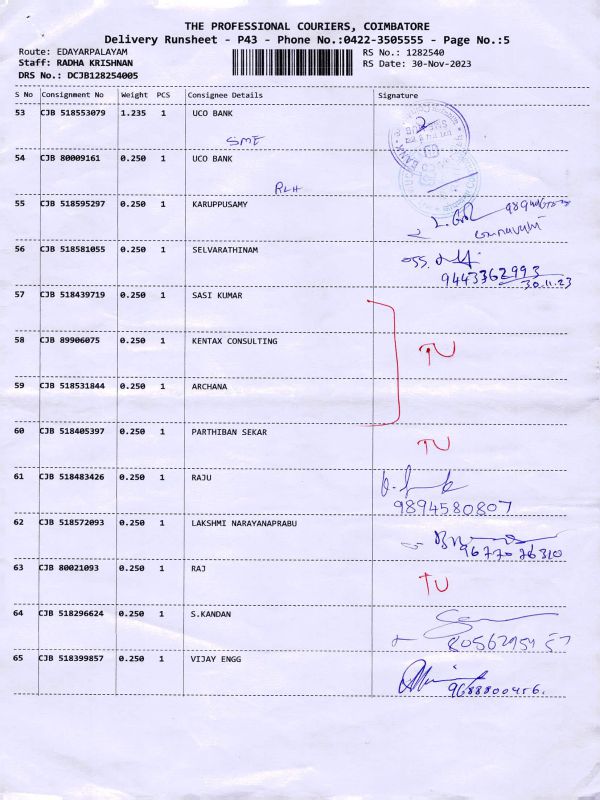 THE PROFESSIONAL COURIERS, COIMBATORE
Delivery Runsheet - P43 - Phone No.:0422-3505555 - Page No.:5
Route: EDAYARPALAYAM RS No.: 1282540
Staff: RADHA KRISHNAN RS Date: 30-Nov-2023
DRS No.: DCJB128254005
S No Consignment No Weight PCS Consignee Details Signature
53 CJB 518553079 1.235 1 UCO BANK
SME
54 CJB 80009161 0.250 1 UCO BANK
RLH
55 CJB 518595297 0.250 1 KARUPPUSAMY
56 CJB 518581055 0.250 1 SELVARATHINAM
9443362993
30.11.23
57 CJB 518439719 0.250 1 SASI KUMAR
58 CJB 89906075 0.250 1 KENTAX CONSULTING TU
59 CJB 518531844 0.250 1 ARCHANA
60 CJB 518405397 0.250 1 PARTHIBAN SEKAR TU
61 CJB 518483426 0.250 1 RAJU
9894580807
62 CJB 518572093 0.250 1 LAKSHMI NARAYANAPRABU
9677076310
63 CJB 80021093 0.250 1 RAJ TU
64 CJB 518296624 0.250 1 S.KANDAN
65 CJB 518399857 0.250 1 VIJAY ENGG
9688800456.